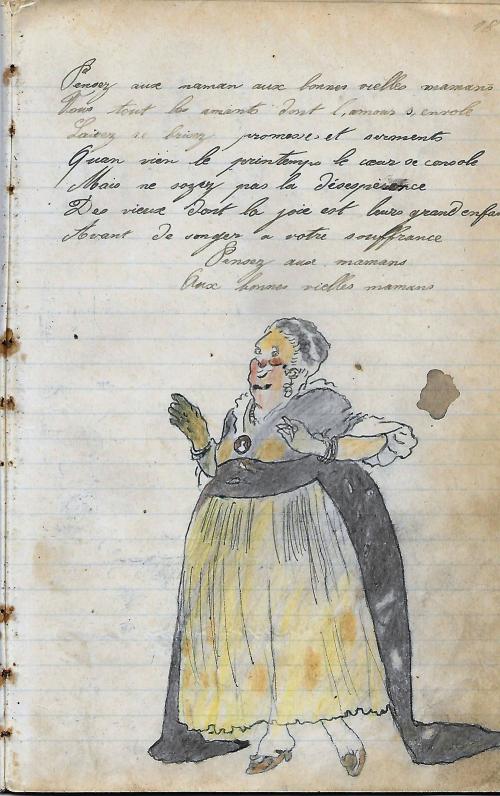 Pensez aux maman aux bonnes vielles mamans
Vous tout les aments dont l'amour s, envole
Laisez se briez promesse et serments
Quan vien le printemps le cœur ce console
Mais ne soyez pas la désesperence
Des vieux dont la joie est leurs grand enfan
Avant de songer a votre souffrance
Pensez aux mamans
Aux bonnes vielles mamans